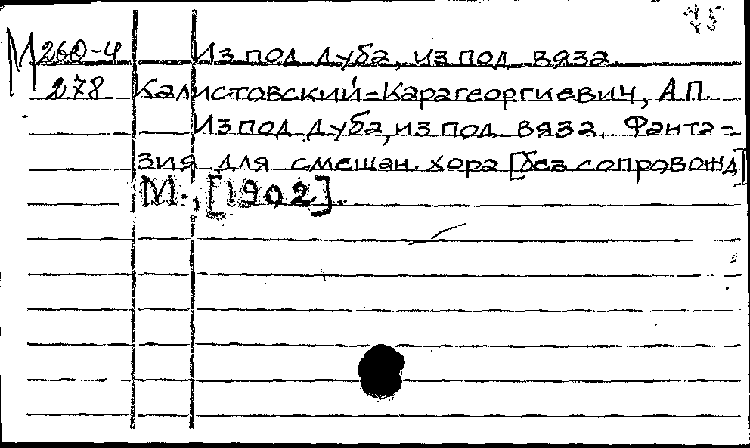 М 260-4 Из под дуба, из под вяза.
278 Калистовский-Карагеоргиевич, А.П.
Из под дуба, из под вяза. Фанта-
зия для смешан. хора [без сопровожд]
М., [1902].